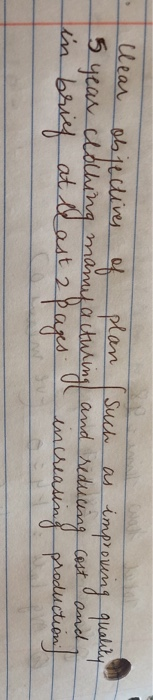 Clear objectives of plan [such as improving quality
5 year clothing manufacturing and reducing cost and
in brief at least 2 pages. increasing production]